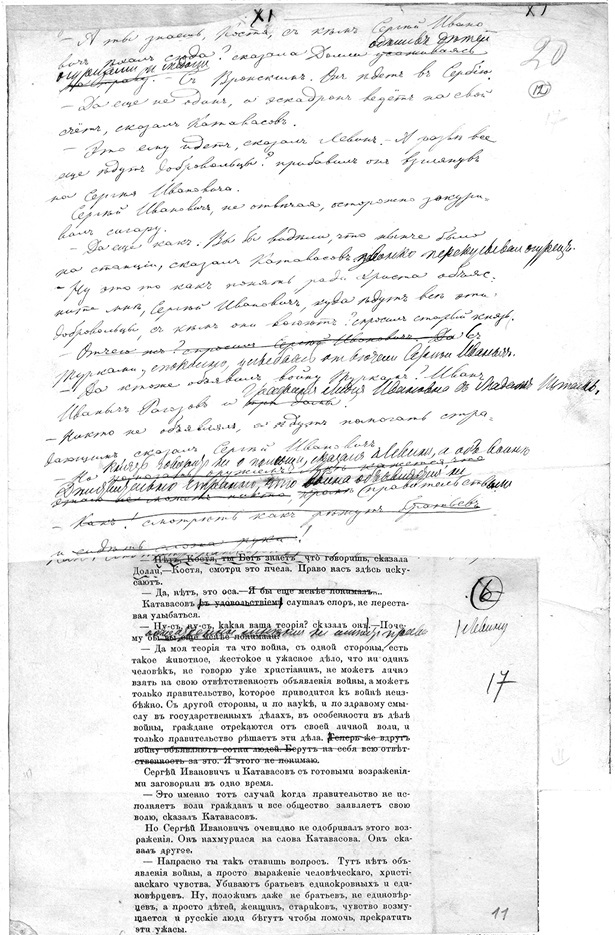 XI
XI
20
12
— А ты знаешь, Костя, съ кѣмъ Сергѣй Ивано
вичъ ѣхалъ сюда? сказала Долли
одѣливъ дѣтей
огурцами и медомъ
— Съ Вронскимъ. Онъ ѣдетъ въ Сербію.
— Да еще не одинъ, а эскадронъ ведётъ на свой
счётъ, сказалъ Катавасовъ.
— Это ему идетъ, сказалъ Левинъ. — А развѣ все
еще ѣдутъ добровольцы? прибавилъ онъ взглянувъ
на Сергѣя Ивановича.
Сергѣй Ивановичъ, не отвѣчая, осторожно
сигару.
— Да еще какъ. Вы бы видѣли, что было
на станціи, сказалъ Катавасовъ звонко перекусывая огурецъ.
— Ну это то какъ понять, ради Христа объяс
ните мнѣ, Сергѣй Ивановичъ, куда ѣдутъ всѣ эти
добровольцы, съ кѣмъ они воюютъ? спросилъ старый князь.
— Отчего
Съ
Турками, спокойно, улыбаясь отвѣчалъ Сергѣй Иванычъ.
— Да кто же объявилъ войну Туркамъ? Иванъ
Иванычъ Рагозовъ и графиня Лидія Ивановна съ Мадамъ Шталь,
— Никто не объявлялъ, а ѣдутъ помогать стра
дающимъ сказалъ Сергѣй Ивановичъ
Но Князь говоритъ не о помощи, сказалъ Левинъ, а объ войнѣ
— Какъ! смотрѣть какъ рѣжутъ братьевъ
и сидѣть сложа руки!
— Нѣтъ, Костя, ты Богъ знаетъ что говоришь, сказала
Долли,—Костя, смотри это пчела. Право насъ здѣсь иску-
саютъ.
— Да, нѣтъ, это оса.—Я бы еще менѣе понималъ...
Катавасовъ съ удовольствіемъ слушалъ споръ, не переста-
вая улыбаться.
— Ну-съ, ну-съ, какая ваша теорія? сказалъ онъ.—Поче-
му бы вы еще менѣе понимали?
Левину
6
17
— Да моя теорія та что война, съ одной стороны, есть
такое животное, жестокое и ужасное дѣло, что ни одинъ
человѣкъ, не говорю уже христіанинъ, не можетъ лично
взять на свою отвѣтственность объявленія войны, а можетъ
только правительство, которое приводится къ войнѣ неиз-
бѣжно. Съ другой стороны, и по наукѣ, и по здравому смы-
слу въ государственныхъ дѣлахъ, въ особенности въ дѣлѣ
войны, граждане отрекаются отъ своей личной воли, и
только правительство рѣшаетъ эти дѣла. Теперь же вдругъ
войну объявляютъ сотни людей. Берутъ на себя всю отвѣт-
ственность за это. Я этого не понимаю.
Сергѣй Ивановичъ и Катавасовъ съ готовыми возраженія-
ми заговорили въ одно время.
— Это именно тотъ случай когда правительство не ис-
полняетъ воли гражданъ и все общество заявляетъ свою
волю, сказалъ Катавасовъ.
Но Сергѣй Ивановичъ очевидно не одобривалъ этого воз-
раженія. Онъ нахмурился на слова Катавасова. Онъ ска-
залъ другое.
— Напрасно ты такъ ставишь вопросъ. Тутъ нѣтъ объ-
явленія войны, а просто выраженіе человѣческаго, христі-
анскаго чувства. Убиваютъ братьевъ единокровныхъ и еди-
новѣрцевъ. Ну, положимъ даже не братьевъ, не единовѣр-
цевъ, а просто дѣтей, женщинъ, стариковъ, чувство возму-
щается и русскіе люди бѣгутъ чтобы помочь, прекратить
эти ужасы.
11